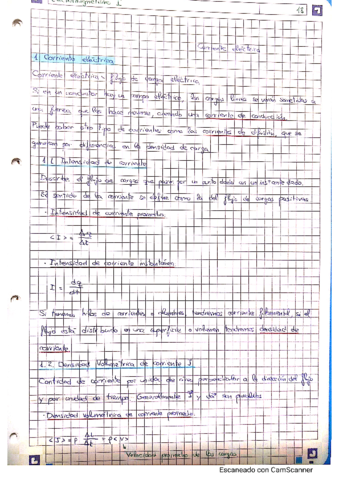 Electromagnetismo I
Corriente eléctrica
1. Corriente eléctrica
Corriente eléctrica = flujo de carga eléctrica
Si en un conductor hay un campo eléctrico, las cargas libres se verán sometidas a
una fuerza que las hace moverse, creando una corriente de conducción.
Puede haber otro tipo de corrientes como las corrientes de difusión, que se
generan por diferencias en la densidad de carga.
1.1. Intensidad de corriente
Describe el flujo de cargas que pasa por un punto dado en un instante dado.
El sentido de la corriente se define como la del flujo de cargas positivas
· Intensidad de corriente promedio
<I> = Δq / Δt
· Intensidad de corriente instantánea
I = dq / dt
Si tenemos hilos de corriente o alambres, tendremos corriente filamental, si el
flujo está distribuido en una superficie o volumen tendremos densidad de
corriente.
1.2. Densidad volumétrica de corriente J
Cantidad de corriente por unidad de área perpendicular a la dirección del flujo
y por unidad de tiempo. Generalmente J y son paralelos
· Densidad volumétrica de corriente promedio
<J> = ρ ΔL / Δt = ρ <v>
Velocidad promedio de las cargas
Escaneado con CamScanner